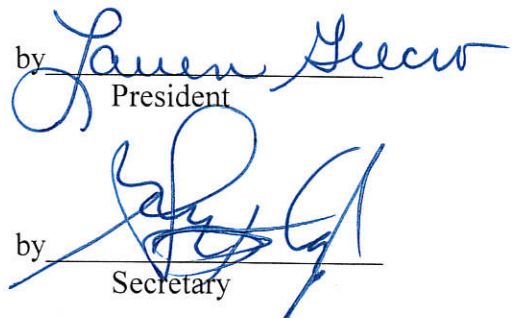 by Lauen Greco
President
by
Secretary